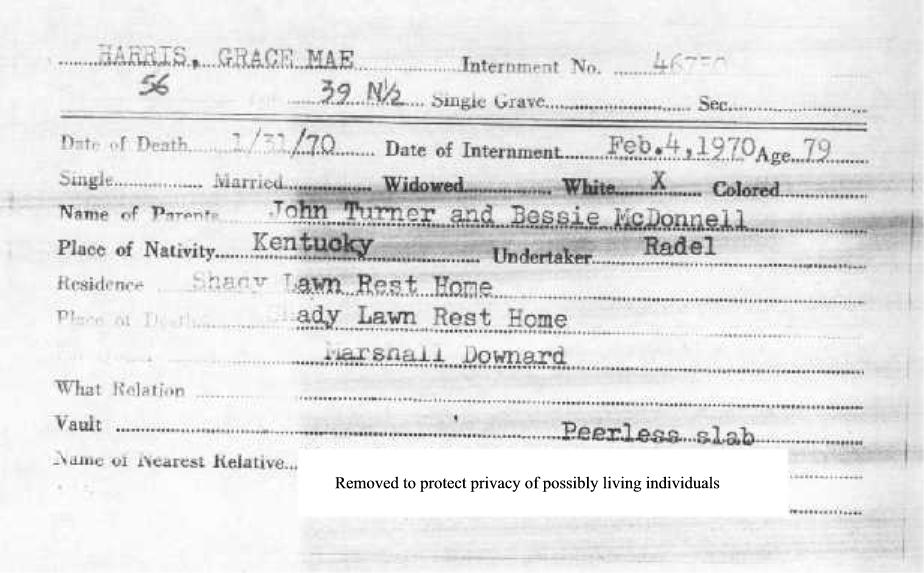 HARRIS, GRACE MAE Internment No.
56 39 N½ Single Grave Sec.
Date of Death 1/31/70 Date of Internment Feb.4,1970 Age 79
Single Married Widowed White X Colored
Name of Parents John Turner and Bessie McDonnell
Place of Nativity Kentucky Undertaker Radel
Residence Shady Lawn Rest Home
Place of Death Shady Lawn Rest Home
Marshall Downard
What Relation
Vault Peerless slab
Name of Nearest Relative
Removed to protect privacy of possibly living individuals